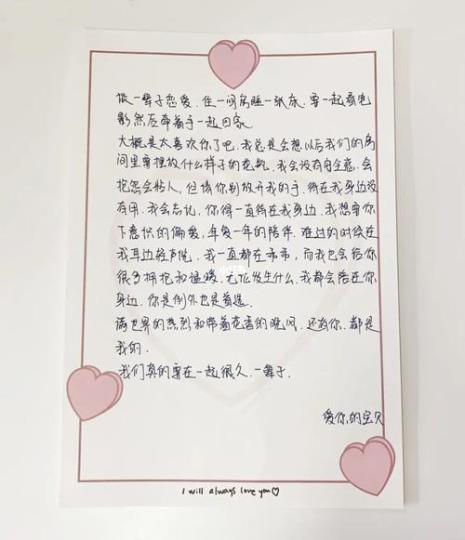 做一辈子恋爱.住一间房睡一张床.要一起看电
影然后牵着手一起回家
大概是太喜欢你了吧.我总是会想以后我们的房
间里要摆放什么样子的花瓶.我会没有安全感.会
抱怨会粘人.但请你别放开我的手.待在我身边没
有用.我会忘记.你得一直待在我身边.我想要你
下意识的偏爱.年复一年的陪伴.难过的时候在
我耳边轻声说.我一直都在乖乖.而我也会给你
很多拥抱和温暖.无论发生什么.我都会陪在你
身边.你是例外也是首选.
满世界的热烈和带着花香的晚风.还有你.都是
我的.
我们真的要在一起很久.一辈子.
爱你的宝贝
I will always love you♡